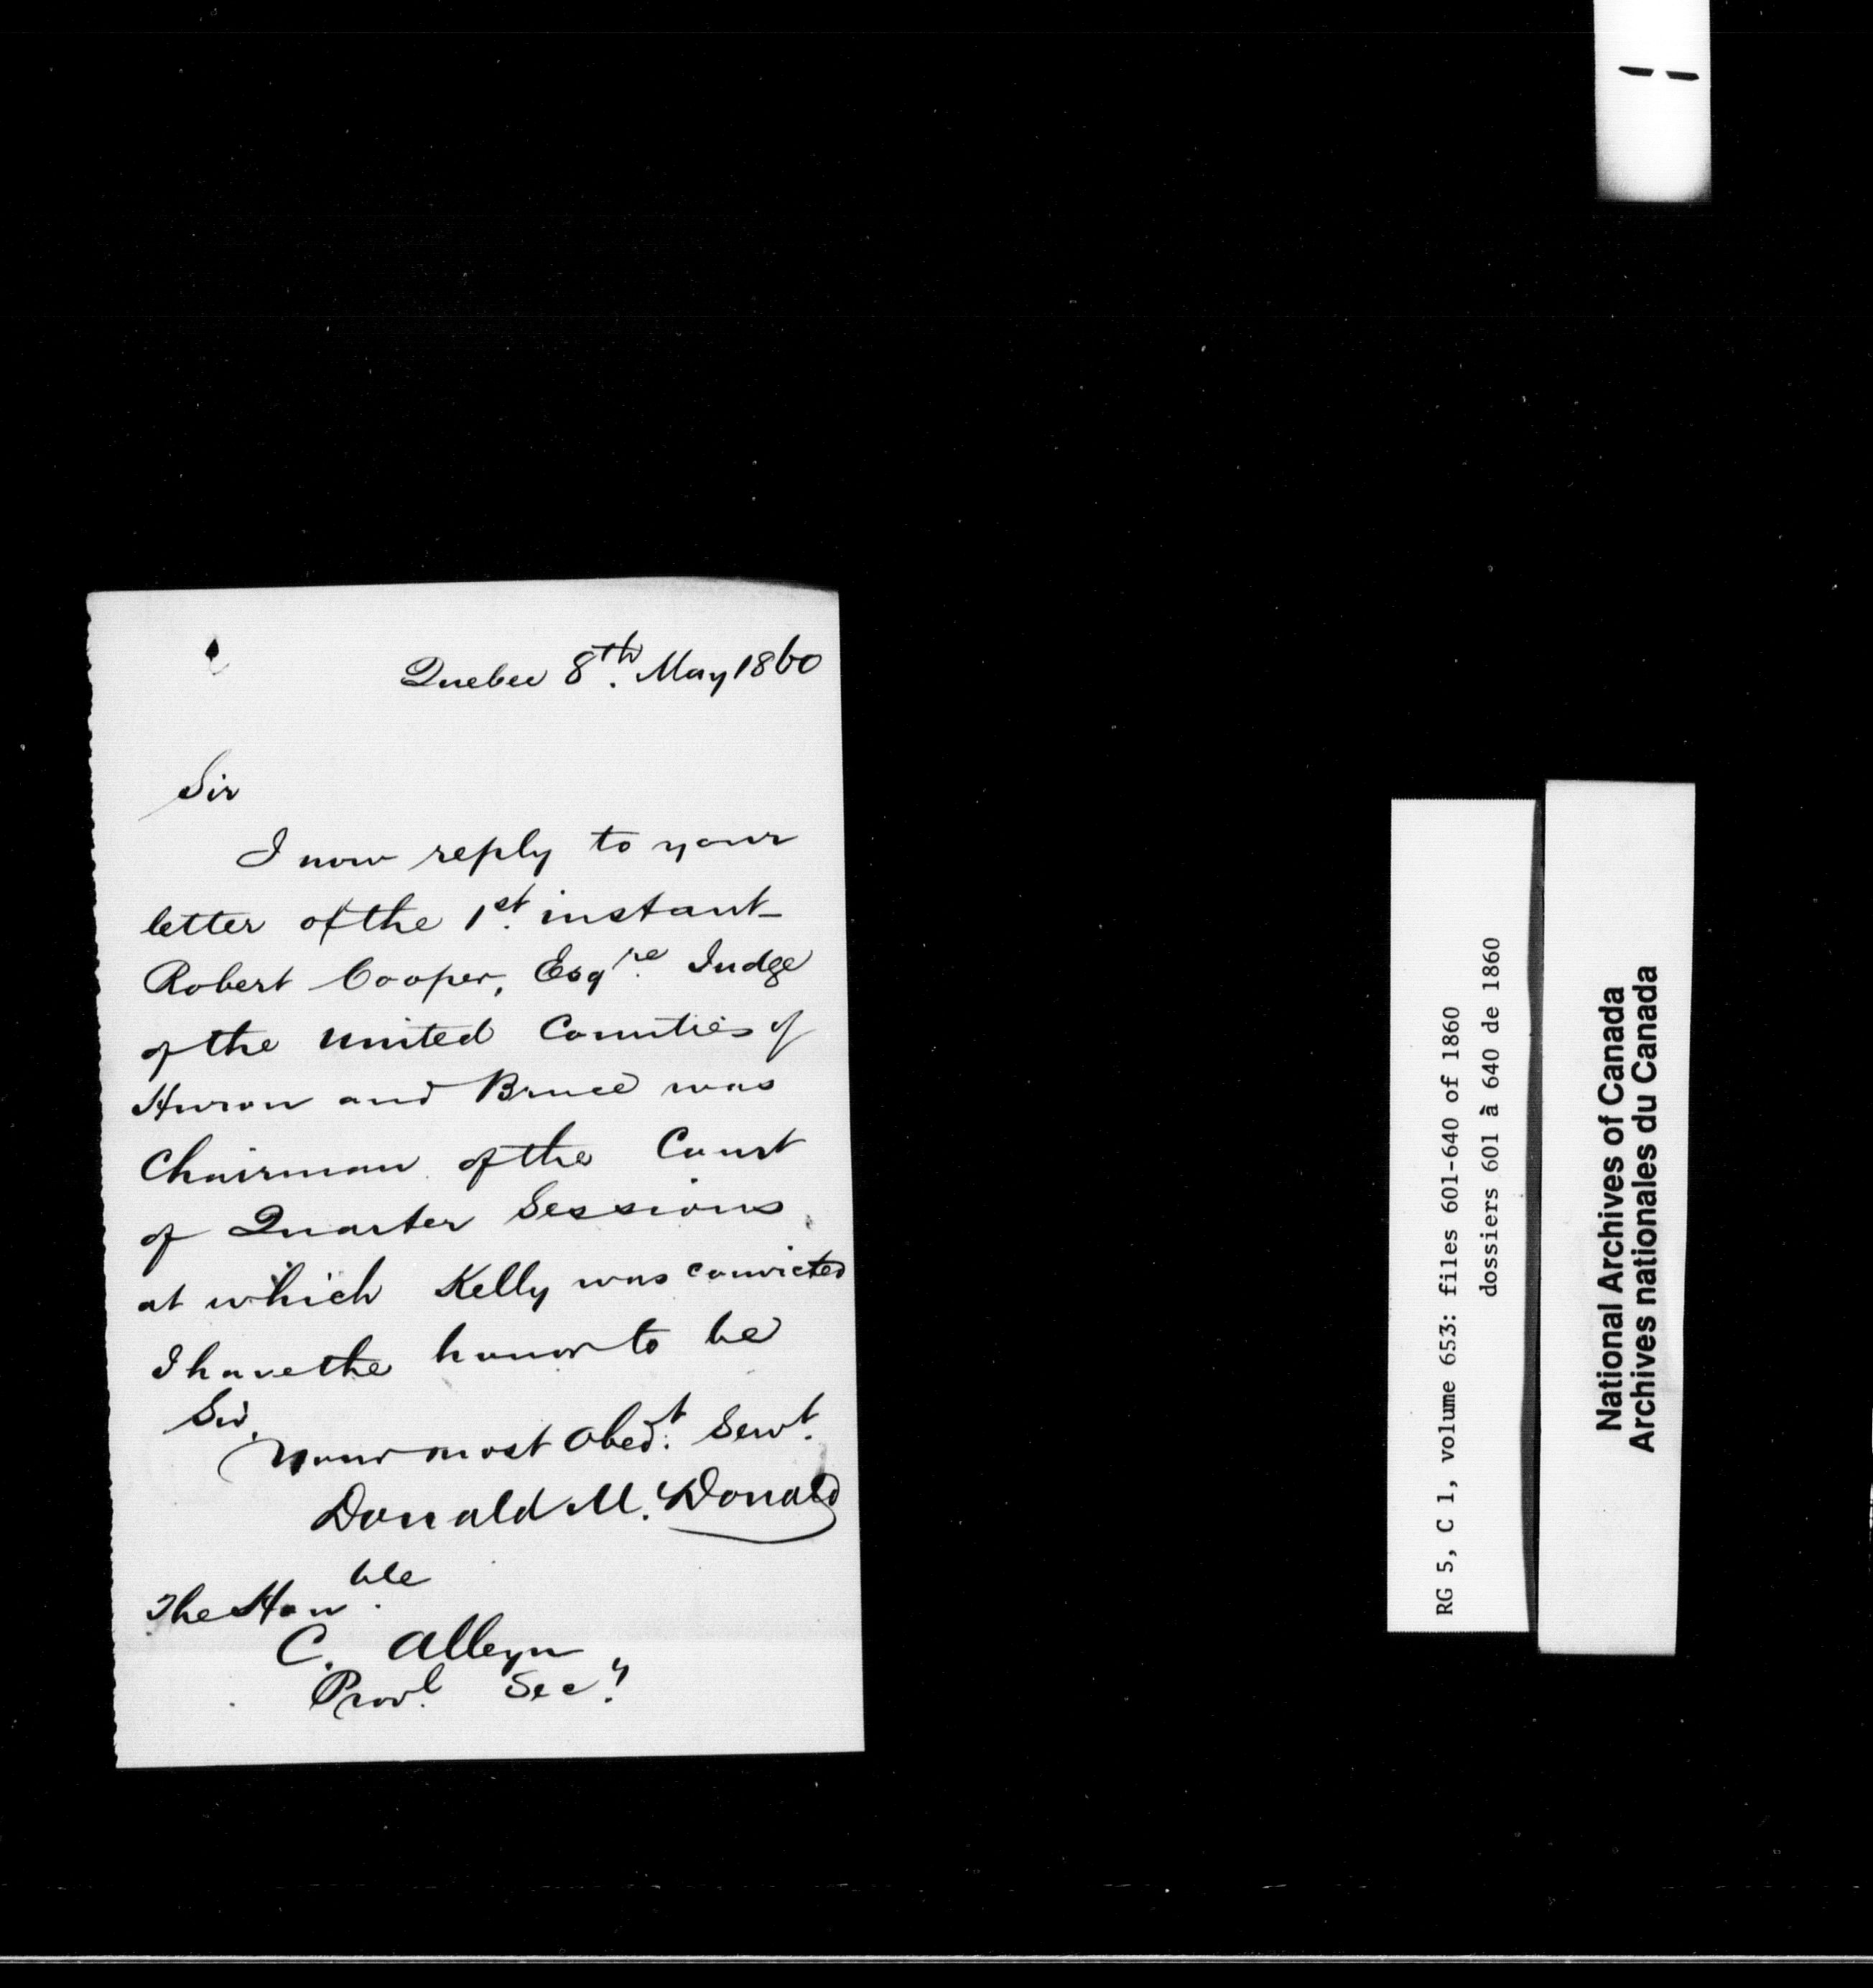 Quebec 8th. May 1860
Sir
I now reply to your
letter of the 1st. instant
Robert Cooper, Esqre. Judge
of the United Counties of
Huron and Bruce was
Chairman of the Court
of Quarter Sessions
at which Kelly was convicted
I have the honor to be
Sir,
Your most Obedt. Servt.
Donald McDonald
The Honble.
C. Alleyn
Provl. Secy.
RG 5, C 1, volume 653: files 601-640 of 1860
dossiers 601 à 640 de 1860
National Archives of Canada
Archives nationales du Canada